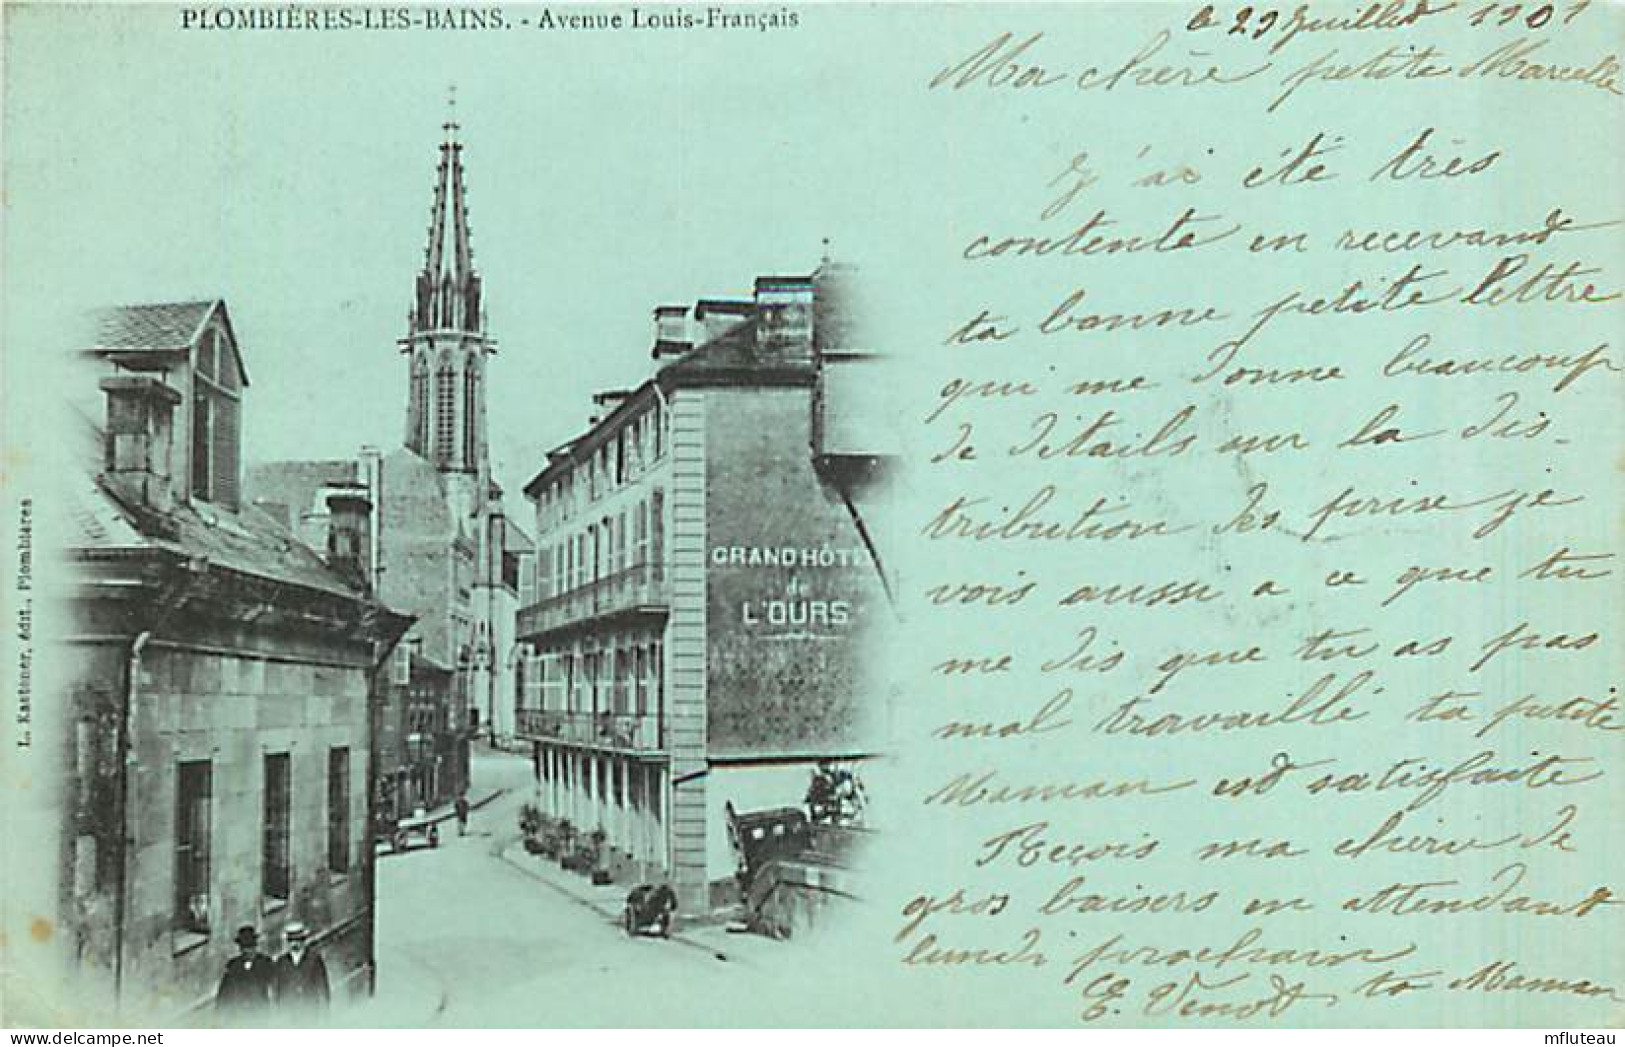 PLOMBIÈRES-LES-BAINS. - Avenue Louis-Français
le 29 Juillet 1901
Ma chère petite Marcelle
J'ai été très
contente en recevant
ta bonne petite lettre
qui me donne beaucoup
de détails sur la dis-
tribution des prix je
vois aussi a ce que tu
me dis que tu as pas
mal travaillé ta petite
Maman est satisfaite
Reçois ma chérie de
gros baisers en attendant
lundi prochain
ta Maman
E.
GRAND HÔTEL
de
L'OURS
L. Kastener, édit., Plombières
mfluteau